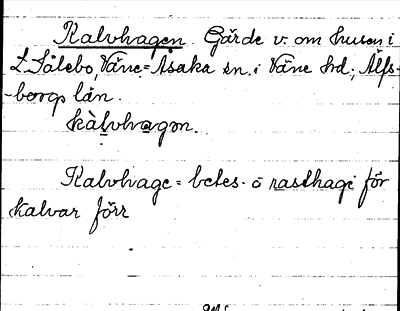 Kalvhagen. Gärde v. om husen i
L. Sålebo, Väne-Åsaka sn. i Väne hd; Älfs-
-borgs län.
kàlvhagən.
Kalvhage = betes- o rasthage för
kalvar förr